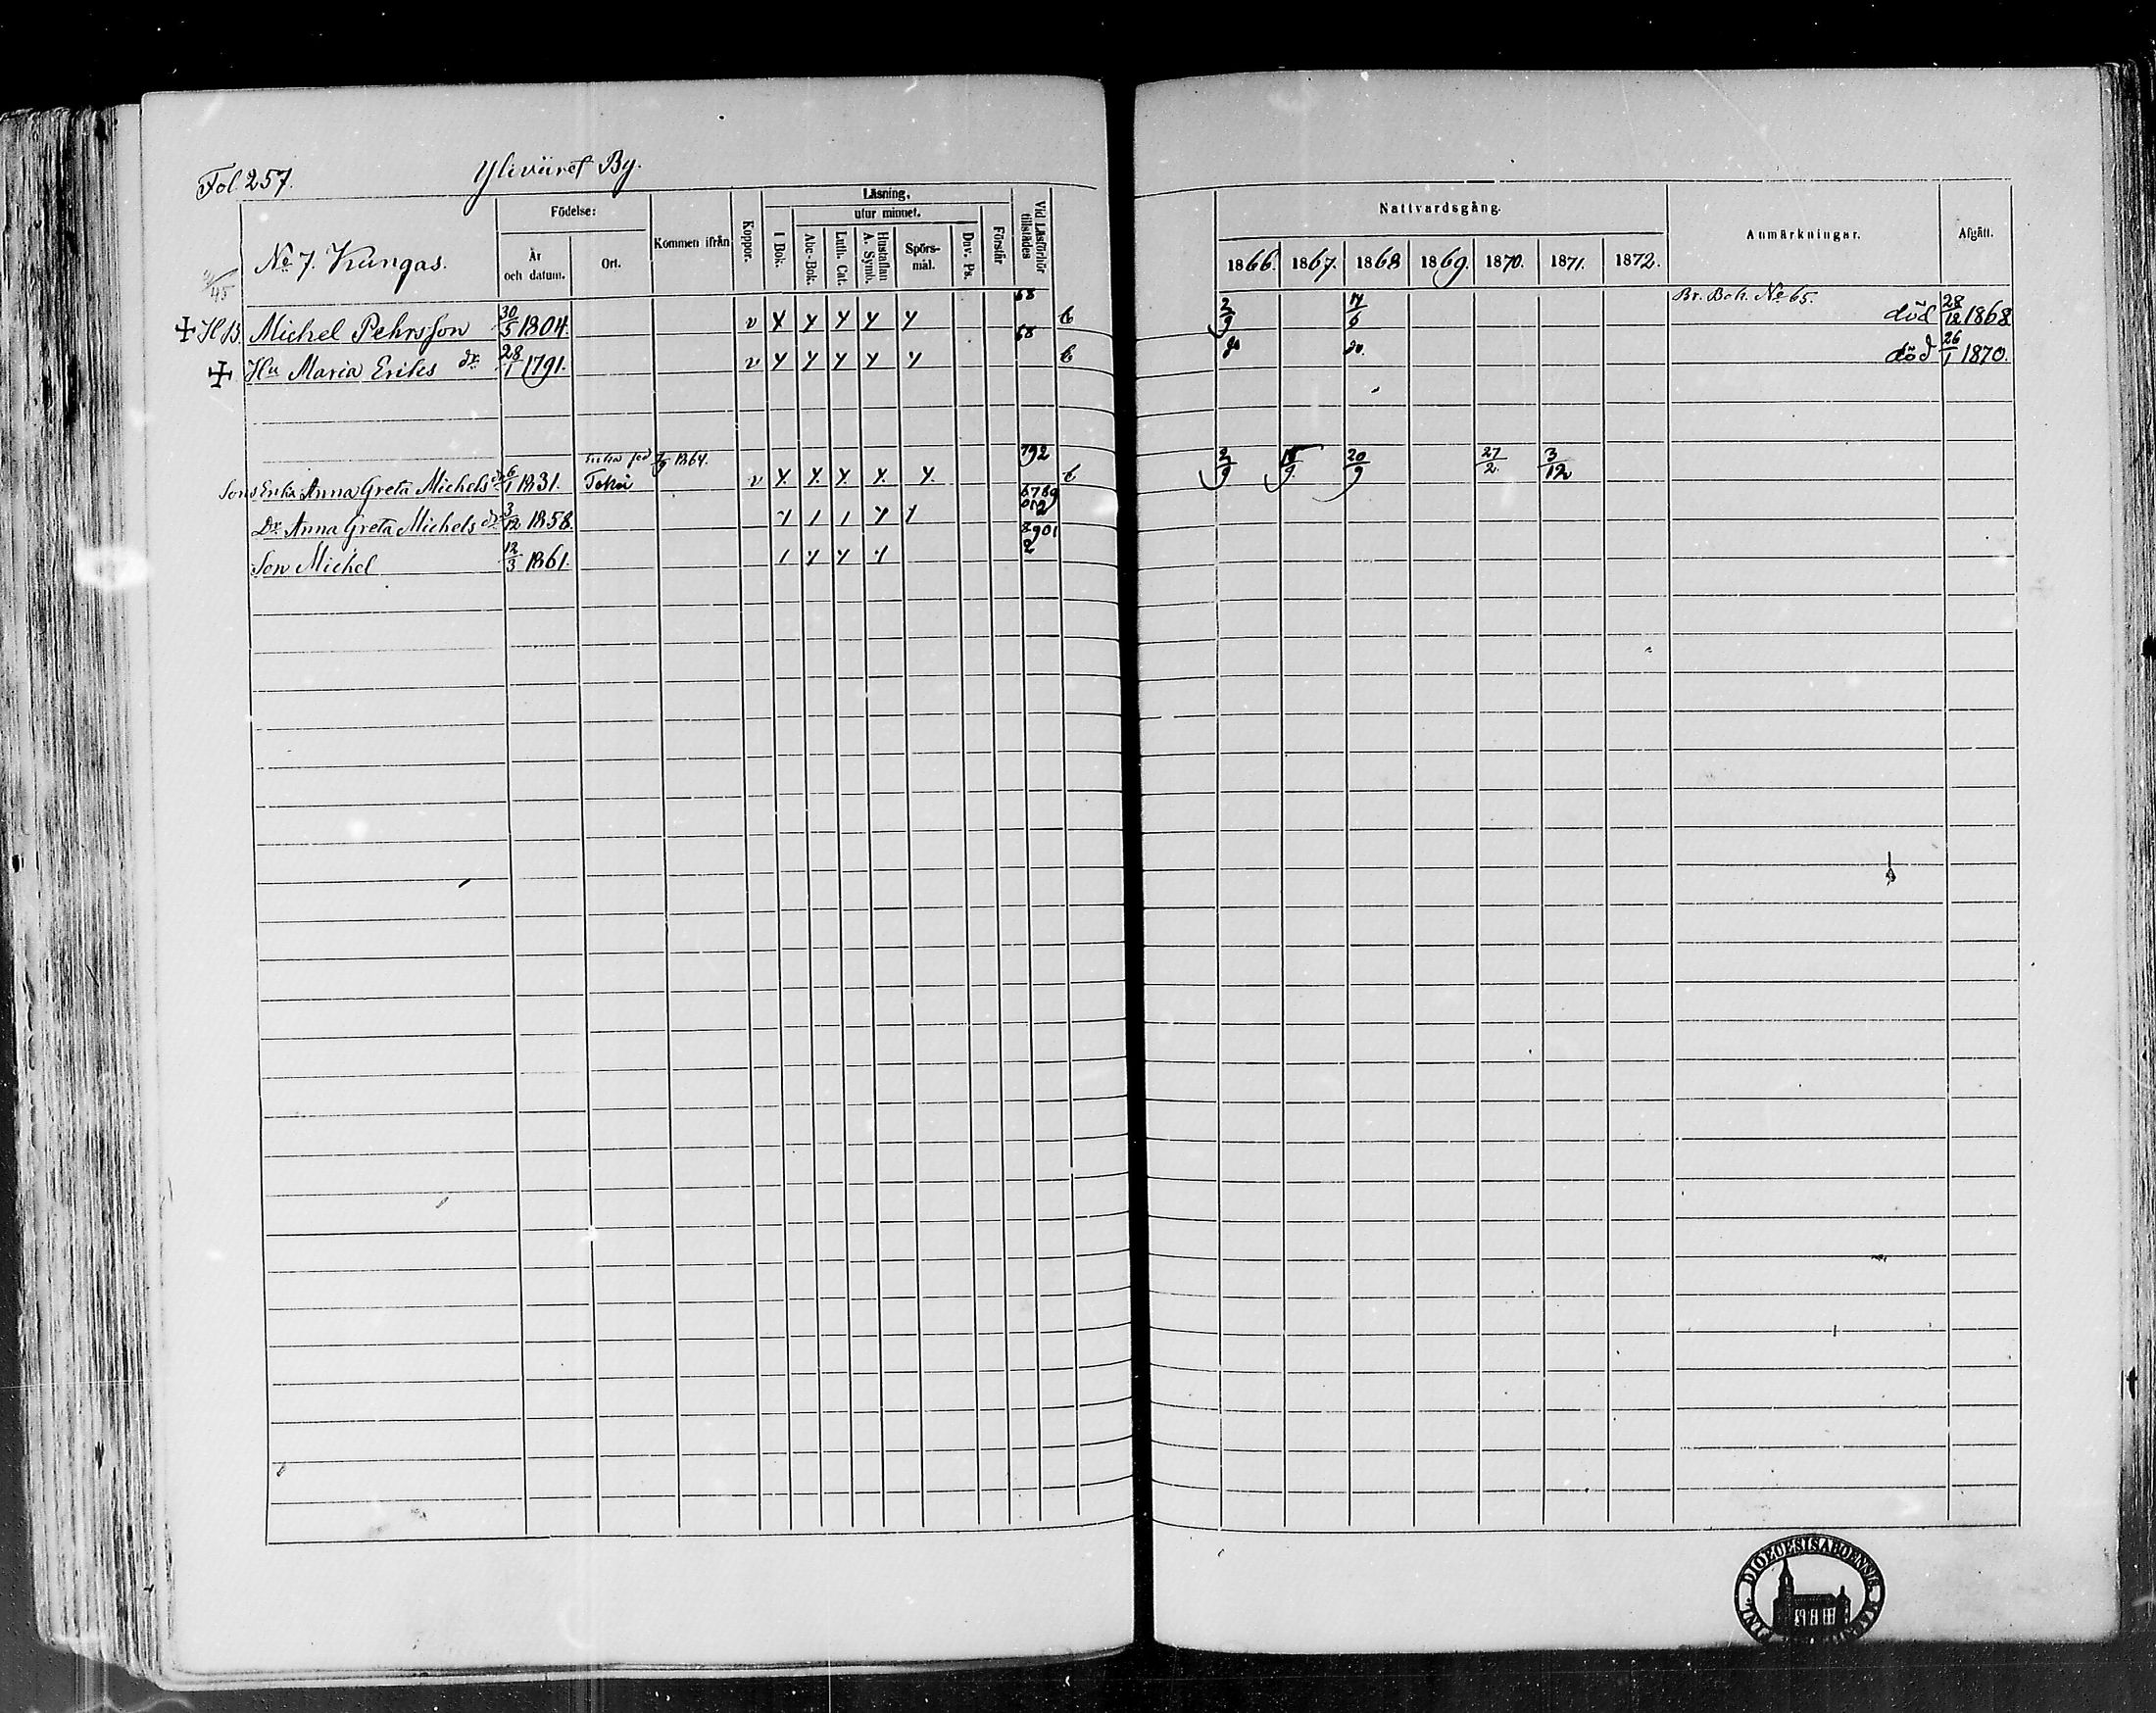 Fol. 257. Ylivüret By.
N:o 7. Kungas.
Födelse:
År och datum.
Ort.
Kommen ifrån
Koppor.
Läsning,
I Bok.
utur minnet.
Abc-Bok.
Luth. Cat.
Hustaflan A. Symb.
Spörsmål.
Dav. Ps.
Förstår
Vid Läsförhör tillstädes
Nattvardsgång.
1866. 1867. 1868 1869. 1870. 1871. 1872.
Anmärkningar.
Afgått.
/45
68 Br. Boh. No 65.
H.B. Michel Pehrsson 30/5 1804. v y y y y y b 2/9 17/6 död 28/12 1868
68
Hu Maria Eriks dr 28/1 1791. v y y y y y b do do. död 26/1 1870.
fed 1864. 792
Sons Enka Anna Greta Michels dr 6/1 1831. v y y y y y. b 2/9 20/9 27/2. 3/12
6789
012
Dr. Anna Greta Michels dr 3/12 1858.
8901
2
Son Michel 12/3 1861.
DIOECESIS ABOENSIS